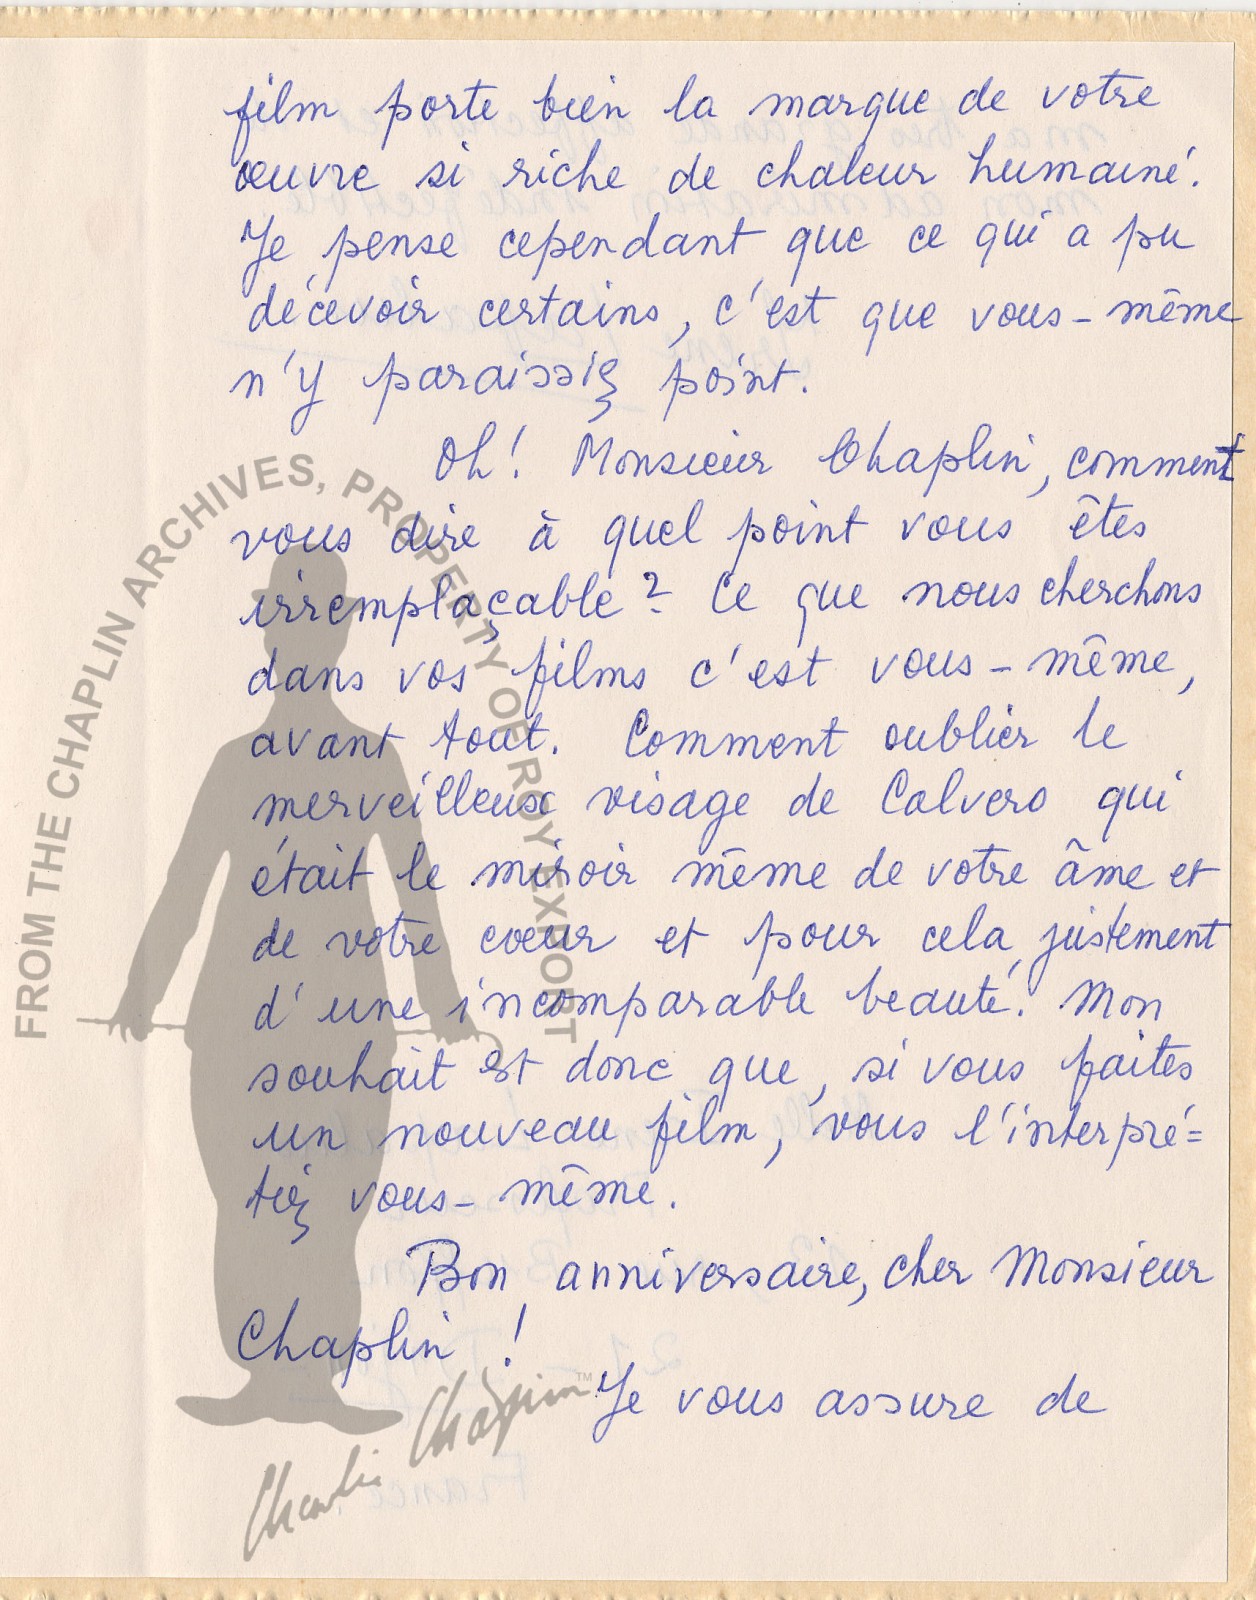 film porte bien la marque de votre
œuvre si riche de chaleur humaine.
Je pense cependant que ce qui a pu
décevoir certains, c'est que vous-même
n'y paraissiez point.
Oh! Monsieur Chaplin, comment
vous dire à quel point vous êtes
irremplaçable? Ce que nous cherchons
dans vos films c'est vous-même,
avant tout. Comment oublier le
merveilleux visage de Calvero qui
était le miroir même de votre âme et
de votre coeur et pour cela, justement
d'une incomparable beauté. Mon
souhait est donc que, si vous faites
un nouveau film, vous l'interpré=
tiez vous-même.
Bon anniversaire, cher Monsieur
Chaplin !
Je vous assure de
FROM THE CHAPLIN ARCHIVES, PROPERTY OF ROY EXPORT
Charlie Chaplin™